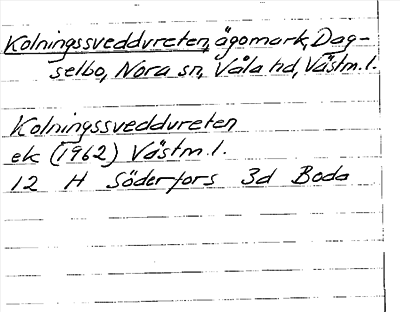 Kolningssveddvreten, ägomark, Dag-
selbo, Nora sn, Våla hd, Västm. l.
Kolningssveddvreten
ek (1962) Västm. l.
12 H Söderfors 3d Boda